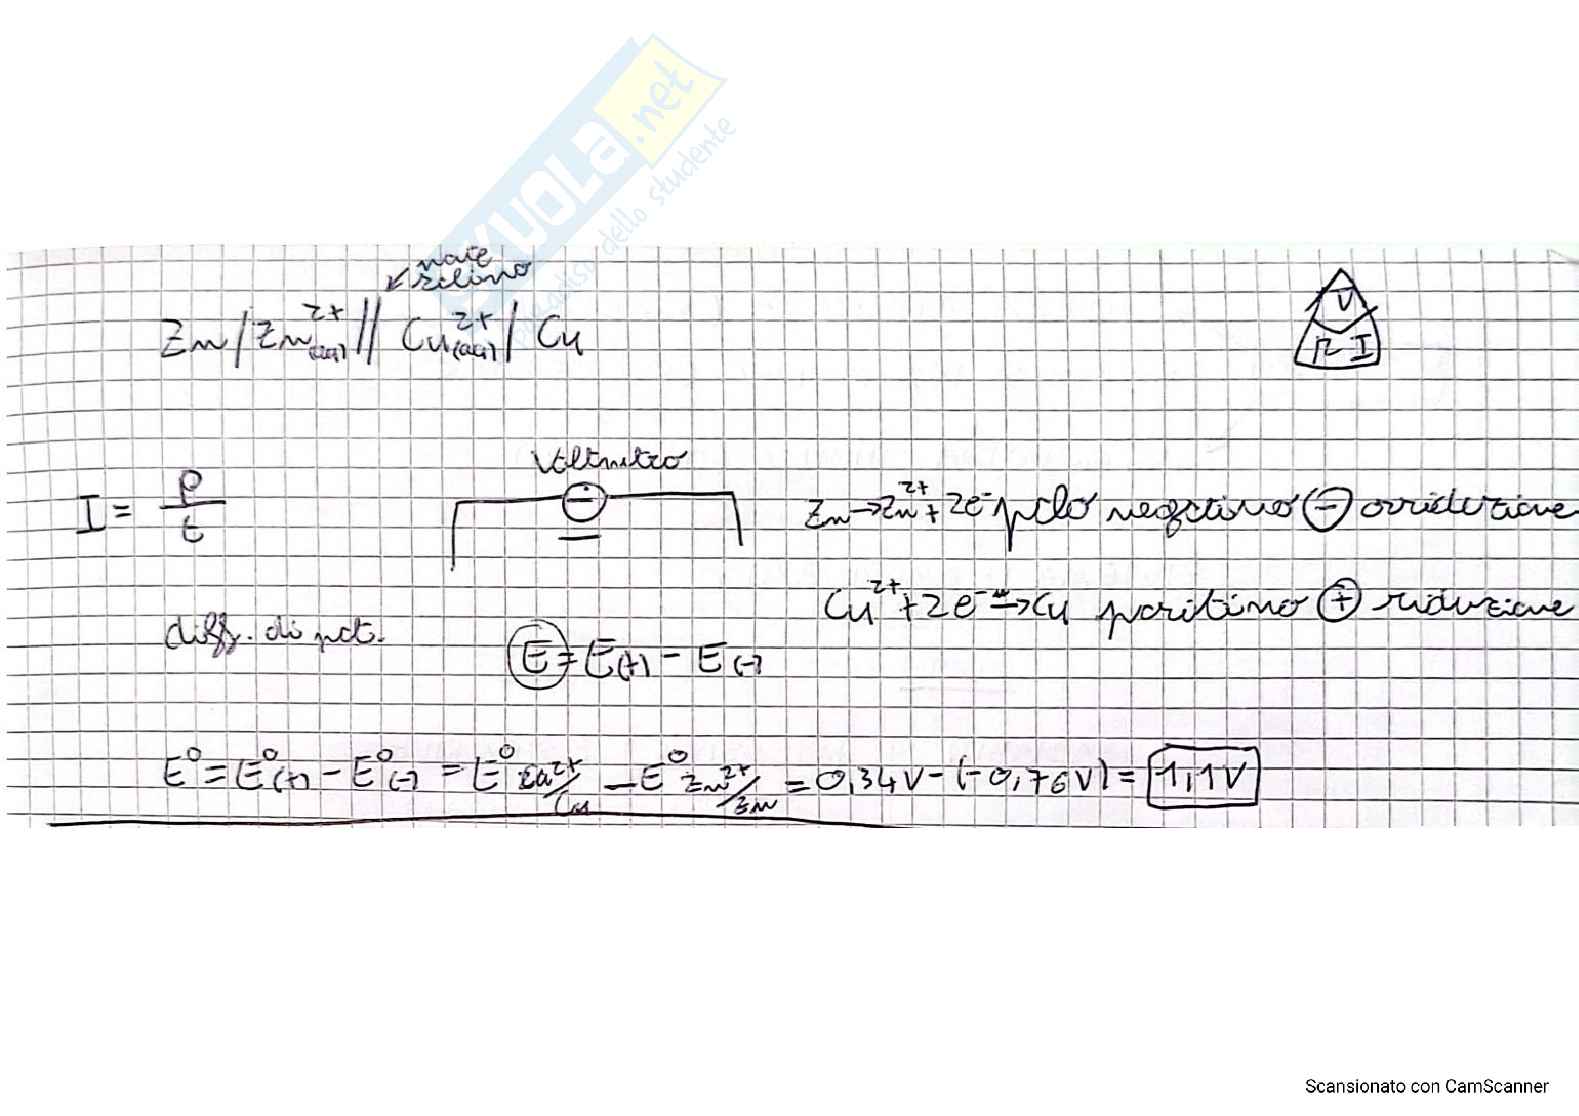 SKUOLA.net
paradiso dello studente
ponte salino
Zn / Zn²⁺(aq) // Cu²⁺(aq) / Cu
V
R I
Voltmetro
I = P/t
Zn → Zn²⁺ + 2e⁻ polo negativo ⊖ ossidazione
Cu²⁺ + 2e⁻ → Cu positivo ⊕ riduzione
diff. di pot.
E = E(+) - E(-)
E⁰ = E⁰(+) - E⁰(-) = E⁰ Cu²⁺/Cu - E⁰ Zn²⁺/Zn = 0,34V - (-0,76V) = 1,1V
Scansionato con CamScanner